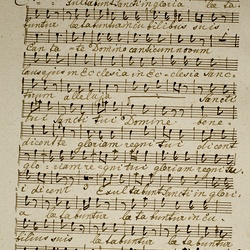 Exultabunt Sancti in gloria læ ta-
buntur læ tabuntur in cu bilibus suis
Canta - te Domino canticum novum
laus ejus in Ecclesia in Ec - clesia Sanc-
torum alleluja Sancti
tui Sancti tui Domine bene-
dicent te gloriam regni tui dicent
glo - riam regni tui gloriam regni tu-
i di cent Exultabunt Sancti in glori-
a læ ta buntur læ ta buntur in cu -
bilibus suis læ tabuntur læ tabuntur